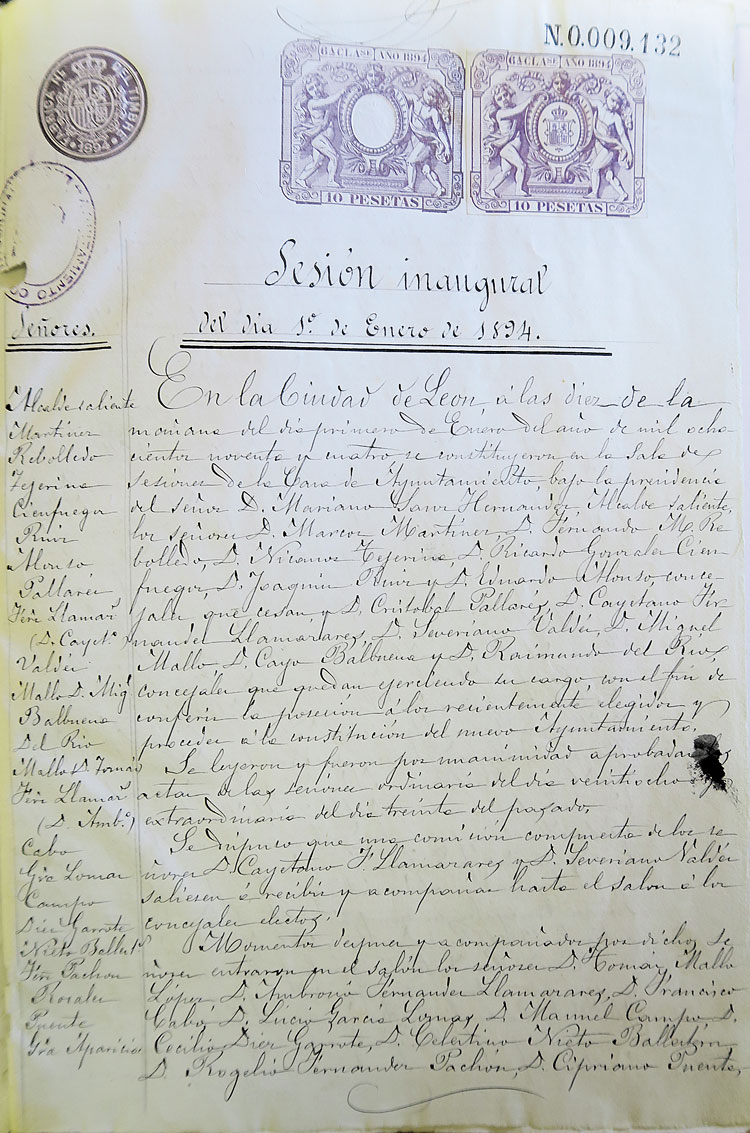 N.0.009.132
6ª CLASE AÑO 1894
10 PESETAS
6ª CLASE AÑO 1894
10 PESETAS
Sesión inaugural
del dia 1º de Enero de 1894.
Señores.
Alcalde saliente
Martinez
Rebolledo
Tejerina
Cienfuegos
Ruiz
Alonso
Pallarés
Frz Llamazs
(D. Cayetº)
Valdés
Mallo D. Mig
Balbuena
Del Rio
Mallo D. Tomás
Frz Llamazs
(D. Ambº)
Cabo
Gra Lomas
Campo
Diez Garrote
Nieto Ballests
Frz Pachon
Rosales
Puente
Gra Aparicio
En la Ciudad de Leon, á las diez de la
mañana del dia primero de Enero del año de mil ocho
cientos noventa y cuatro se constituyeron en la Sala de
sesiones de la Casa de Ayuntamiento, bajo la presidencia
del señor D. Mariano Sanz Hernandez, Alcalde saliente,
los señores D. Marcos Martinez, D. Fernando M. Re
bolledo, D. Nicanor Tejerina, D. Ricardo Gonzalez Cien
fuegos, D. Joaquin Ruiz y D. Eduardo Alonso, conce
jales que cesan, y D. Cristobal Pallarés, D. Cayetano Fer
nandez Llamazares, D. Severiano Valdés, D. Miguel
Mallo, D. Cayo Balbuena y D. Raimundo del Rio,
concejales que quedan ejerciendo su cargo, con el fin de
conferir la posesion á los recientemente elegidos y
proceder á la constitución del nuevo Ayuntamiento.
Se leyeron y fueron por unanimidad aprobadas
actas de las sesiones ordinaria del dia veintiocho y
extraordinaria del dia treinta del pasado.
Se dispuso que una comisión compuesta de los se
ñores D. Cayetano F. Llamazares y D. Severiano Valdés
saliesen á recibir y acompañar hasta el salon á los
concejales electos.
Momentos despues y acompañados por dichos se
ñores entraron en el salón los señores D. Tomás Mallo
López, D. Ambrosio Fernandez Llamazares, D. Francisco
Cabo, D. Lucio Garcia Lomas, D. Manuel Campo, D.
Cecilio Diez Garrote, D. Celestino Nieto Ballesteros
D. Rogelio Fernandez Pachón, D. Cipriano Puente,